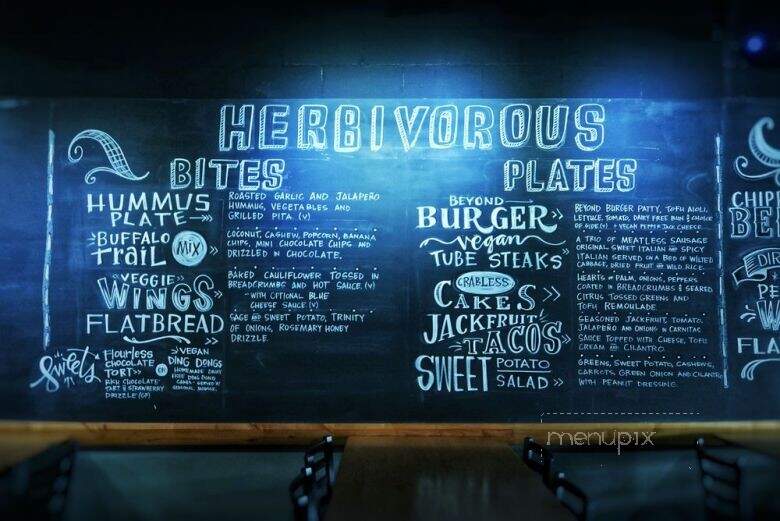 HERBIVOROUS
BITES
HUMMUS
PLATE
ROASTED GARLIC AND JALAPEÑO
HUMMUS, VEGETABLES AND
GRILLED PITA. (V)
BUFFALO
TRAIL MIX
COCONUT, CASHEW, POPCORN, BANANA
CHIPS, MINI CHOCOLATE CHIPS AND
DRIZZLED IN CHOCOLATE.
VEGGIE
WINGS
BAKED CAULIFLOWER TOSSED IN
BREADCRUMBS AND HOT SAUCE. (V)
-WITH OPTIONAL BLUE
CHEESE SAUCE (V)
FLATBREAD
SAGE SWEET POTATO, TRINITY
OF ONIONS, ROSEMARY HONEY
DRIZZLE.
Sweets
Flourless
CHOCOLATE
TORT
CHOCOLATE
TORT & STRAWBERRY
DRIZZLE (GF)
OR
VEGAN
DING DONGS
HOMEMADE
DING DONG
PLATES
BEYOND
BURGER
BEYOND BURGER PATTY, TOFU AIOLI,
LETTUCE, TOMATO, DAIRY FREE BUN & CHOICE
OF SIDE (V) + VEGAN PEPPER JACK CHEESE.
vegan
TUBE STEAKS
A TRIO OF MEATLESS SAUSAGE
ORIGINAL, SWEET ITALIAN SPICY
ITALIAN SERVED ON A BED OF WILTED
CABBAGE, DRIED FRUIT WILD RICE.
CRABLESS
CAKES
HEARTS OF PALM, ONIONS, PEPPERS
COATED IN BREADCRUMBS & SEARED
CITRUS TOSSED GREENS AND
TOFU REMOULADE
JACKFRUIT
TACOS
SEASONED JACKFRUIT, TOMATO,
JALAPEÑO AND ONIONS IN CARNITAS
SAUCE TOPPED WITH CHEESE, TOFU
CREAM CILANTRO.
SWEET POTATO
SALAD
GREENS, SWEET POTATO, CASHEWS,
CARROTS, GREEN ONION AND CILANTRO
WITH PEANUT DRESSING.
CHIP
BE
DIR
PE
W
FLA
menupix